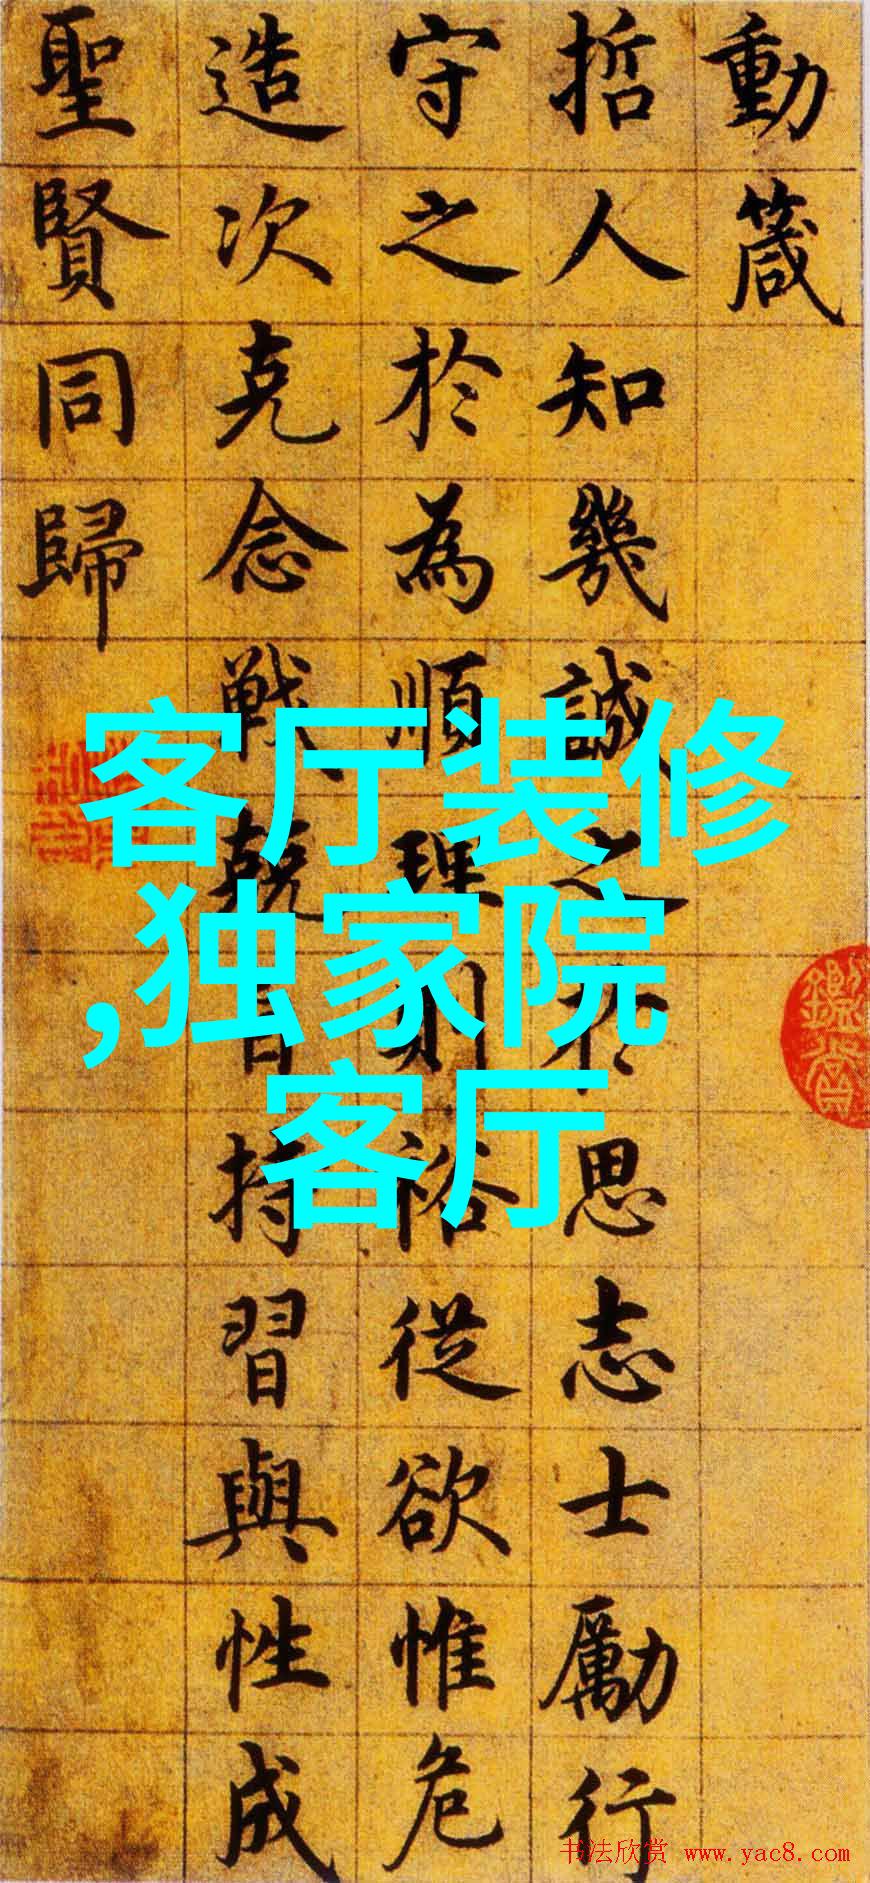 動箴
哲人知幾誠之於思志士勵行
守之於為順理則裕從欲惟危
造次克念戦兢自持習與性成
聖賢同歸
客厅装修
,独家院
客厅
书法欣赏 www.yac8.com